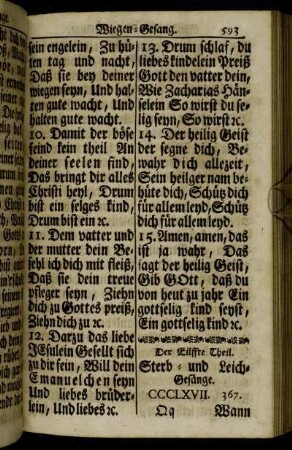 Wiegen-Gesang. 593
sein engelein, Zu hü-
ten tag und nacht,
Daß sie bey deiner
wiegen seyn, Und hal-
ten gute wacht, Und
halten gute wacht.
10. Damit der böse
feind kein theil An
deiner seelen find,
Das bringt dir alles
Christi heyl, Drum
bist ein selges kind,
Drum bist ein ꝛc.
11. Dem vatter und
der mutter dein Be-
fehl ich dich mit fleiß,
Daß sie dein treue
pfleger seyn, Ziehn
dich zu Gottes preiß,
Ziehn dich zu ꝛc.
12. Darzu das liebe
JEsulein Gesellt sich
zu dir sein, Will dein
Emanuelchen seyn
Und liebes brüder-
lein, Und liebes ꝛc.
13. Drum schlaf, du
liebes kindelein Preiß
Gott den vatter dein,
Wie Zacharias Hän-
selein So wirst du se-
lig seyn, So wirst ꝛc.
14. Der heilig Geist
der segne dich, Be-
wahr dich allezeit,
Sein heilger nam be-
hüte dich, Schütz dich
für allem leyd, Schütz
dich für allem leyd.
15. Amen, amen, das
ist ja wahr, Das
sagt der heilig Geist,
Gib GOtt, daß du
von heut zu jahr Ein
gottselig kind seyst,
Ein gottselig kind ꝛc.
Der Eilffte Theil.
Sterb- und Leich-
Gesänge.
CCCLXVII. 367.
Qq Wann